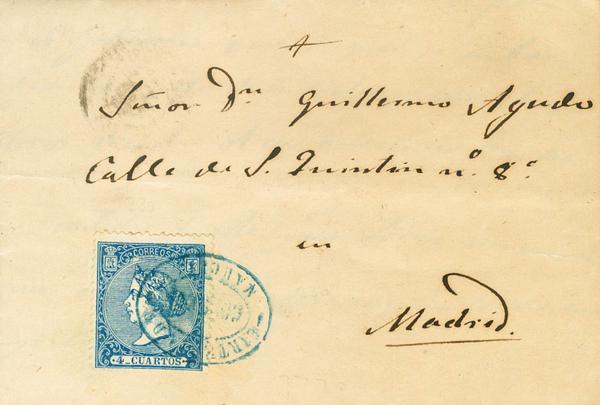 Señor Dn Guillermo Agudo
Calle de S. Quintin nº 8º
en
Madrid.
CORREOS
4 CUARTOS